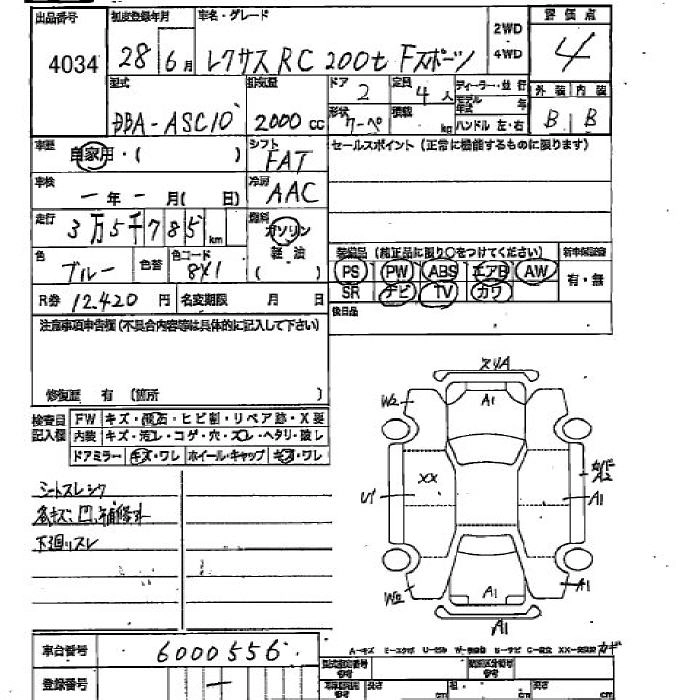 出品番号 4034
初度登録年月 28年6月
車名・グレード レクサスRC 200t Fスポーツ
2WD
4WD
評価点 4
型式 DBA-ASC10
排気量 2000 cc
ドア 2
定員 4人
ディーラー・並行
モデル年式 年
形状 クーペ
積載 kg
ハンドル 左・右
外装 B
内装 B
車歴 自家用・( )
シフト FAT
セールスポイント(正常に機能するものに限ります)
車検 ー年ー月( 日)
冷房 AAC
走行 3万5千785km
燃料 ガソリン
軽油
( )
色 ブルー
色替
色コード 8X1
装備品(純正品に限り○をつけてください)
新車保証書
PS PW ABS エアB AW
有・無
SR ナビ TV カワ
R券 12,420円
名変期限 月 日
後日品
注意事項申告欄(不具合内容等は具体的に記入して下さい)
修復歴 有(箇所 )
検査員記入欄
FW キズ・飛石・ヒビ割・リペア跡・X要
内装 キズ・汚レ・コゲ・穴・スレ・ヘタリ・酸レ
ドアミラー キズ・ワレ ホイール・キャップ キズ・ワレ
シートスレシワ
各キズ、凹、補修跡
下廻リスレ
スリA
A1
W2
XX
U1
A1
ガリ A2
A1
W2
A1
A1
車台番号 6000556
登録番号 ー